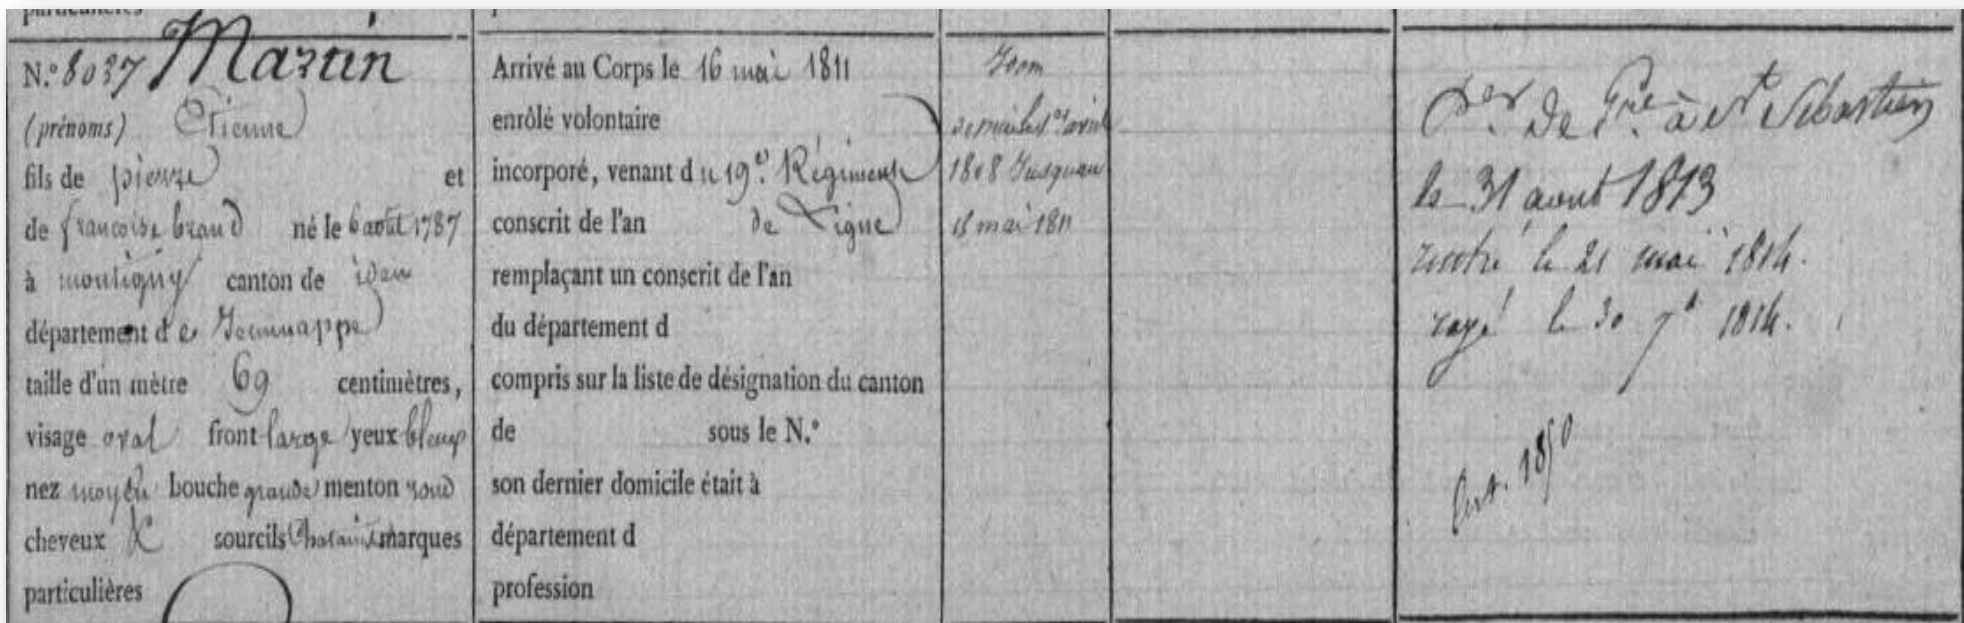 particulières
N.° 8037 Martin
(prénoms) Etienne
fils de pierre et
de francoise braud né le 6 août 1787
à montigny canton de
département de Jemmappe
taille d'un mètre 69 centimètres,
visage oval front large yeux bleux
nez moyen bouche grande menton rond
cheveux & sourcils Chatains marques
particulières
Arrivé au Corps le 16 mai 1811
enrôlé volontaire
incorporé, venant du 19.e Régiment
conscrit de l'an de Ligne
remplaçant un conscrit de l'an
du département d
compris sur la liste de désignation du canton
de sous le N.°
son dernier domicile était à
département d
profession
avril
1808 Jusquau
15 mai 1811
Per. de Gre. à St Sébastien
le 31 aout 1813
rentré le 21 mai 1814.
rayé le 30 7b 1814.